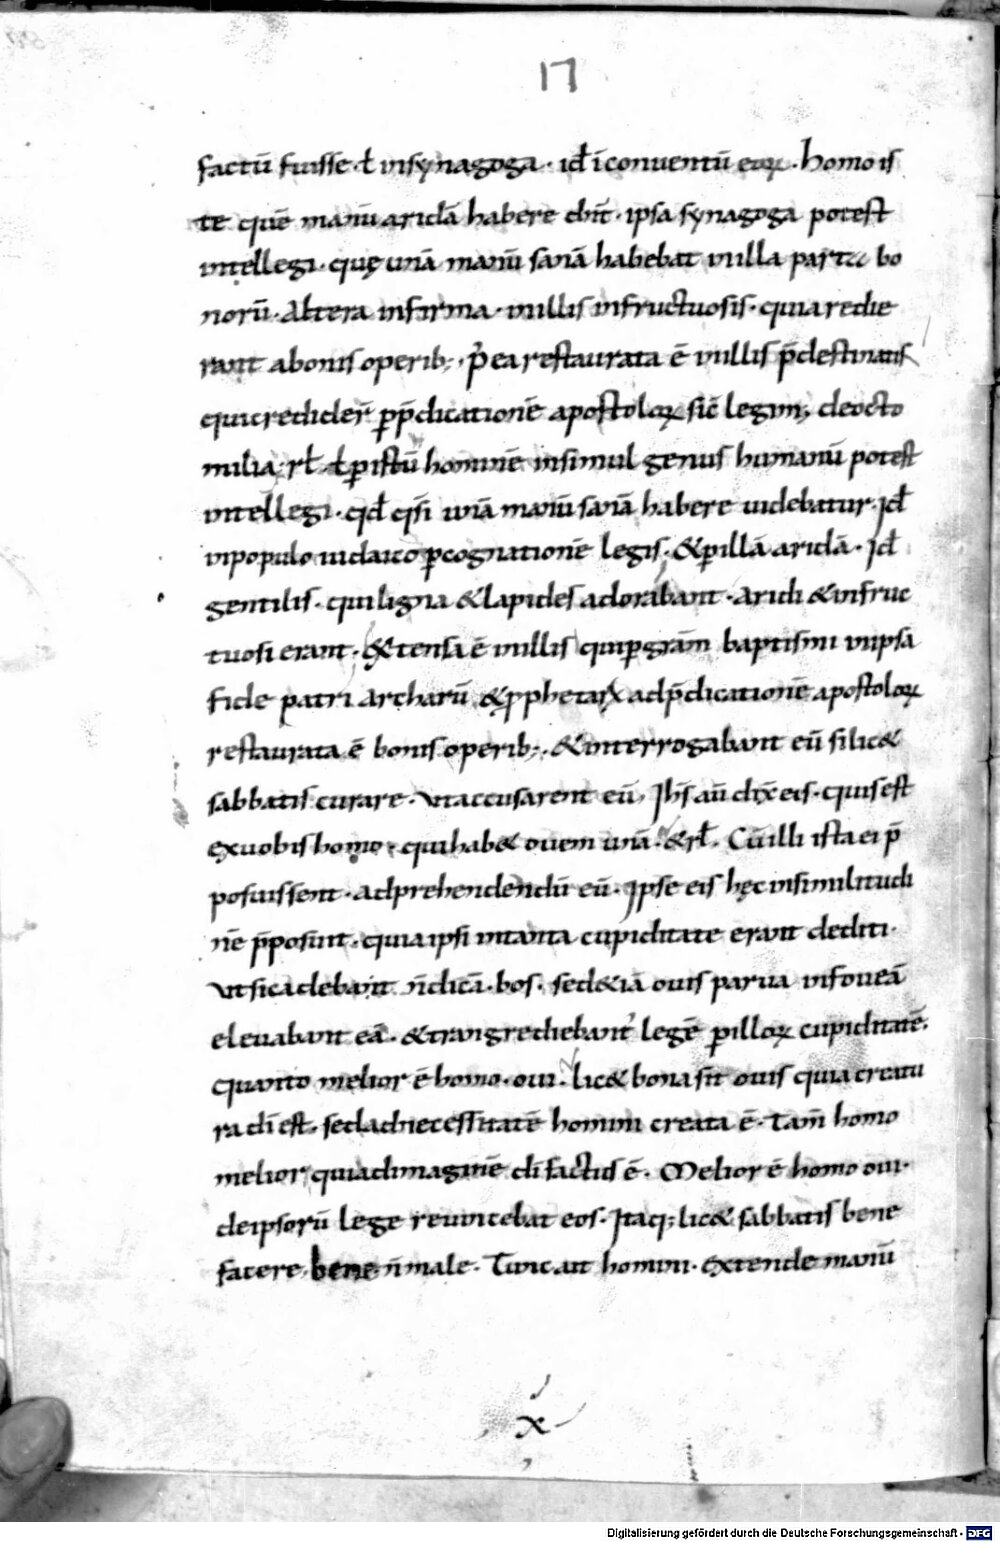 17
factū fuisse · ł insynagoga · id ł īconuentū eoꝝ · homo is
te quē manū aridā habere dix̄ · ipsa synagoga potest
intellegi · quę unā manū sanā habebat in illa parte bo
norū · Altera infirma · in illis infructuosis · quia redie
rant abonis operib; · p̄ ea restaurata ē in illis p̄destinatis
qui credider̄ ꝑ p̄dicationē apostoloꝝ sic̄ legim; de octo
milia · rł · ł ꝑ istū hominē insimul genus humanū potest
intellegi · qđ q̄si unā manū sanā habere uidebatur · Iđ
inpopulo iudaico ꝑ cognationē legis · & ꝑ illā aridā · Iđ
gentilis · qui ligna & lapides adorabant · aridi & infruc
tuosi erant · Extensa ē in illis qui ꝑ grām baptismi inipsā
fide patriarcharū & ꝓphetaꝝ ad p̄dicationē apostoloꝝ
restaurata ē bonis operib; · & interrogabant eū si lic&
sabbatis curare · ut accusarent eū, Ihs̄ aū dix̄ eis · quis est
ex uobis homo · qui hab& ouem unā · & rł · Cū illi ista ei p̄
posuissent · ad prehendendū eū · Ipse eis hęc insimilitudi
nē p̄posuit · quia ipsi intanta cupiditate erant dediti ·
ut si cadebant n̄ dicā · bos · sed &iā ouis parua infoueā
eleuabant eā · & transgrediebant' legē ꝑ illoꝝ cupiditatē ·
quanto melior ē homo · oui · lic& bona sit ouis quia creatu
ra dī est · sed ad necessitatē homini creata ē · Tam̄ homo
melior quia adimaginē dī factus ē · Melior ē homo oui ·
de ipsorū lege reuincebat eos · Itaq; lic& sabbatis bene
facere · bene n̄ male · Tunc ait homini · extende manū
x
Digitalisierung gefördert durch die Deutsche Forschungsgemeinschaft · DFG